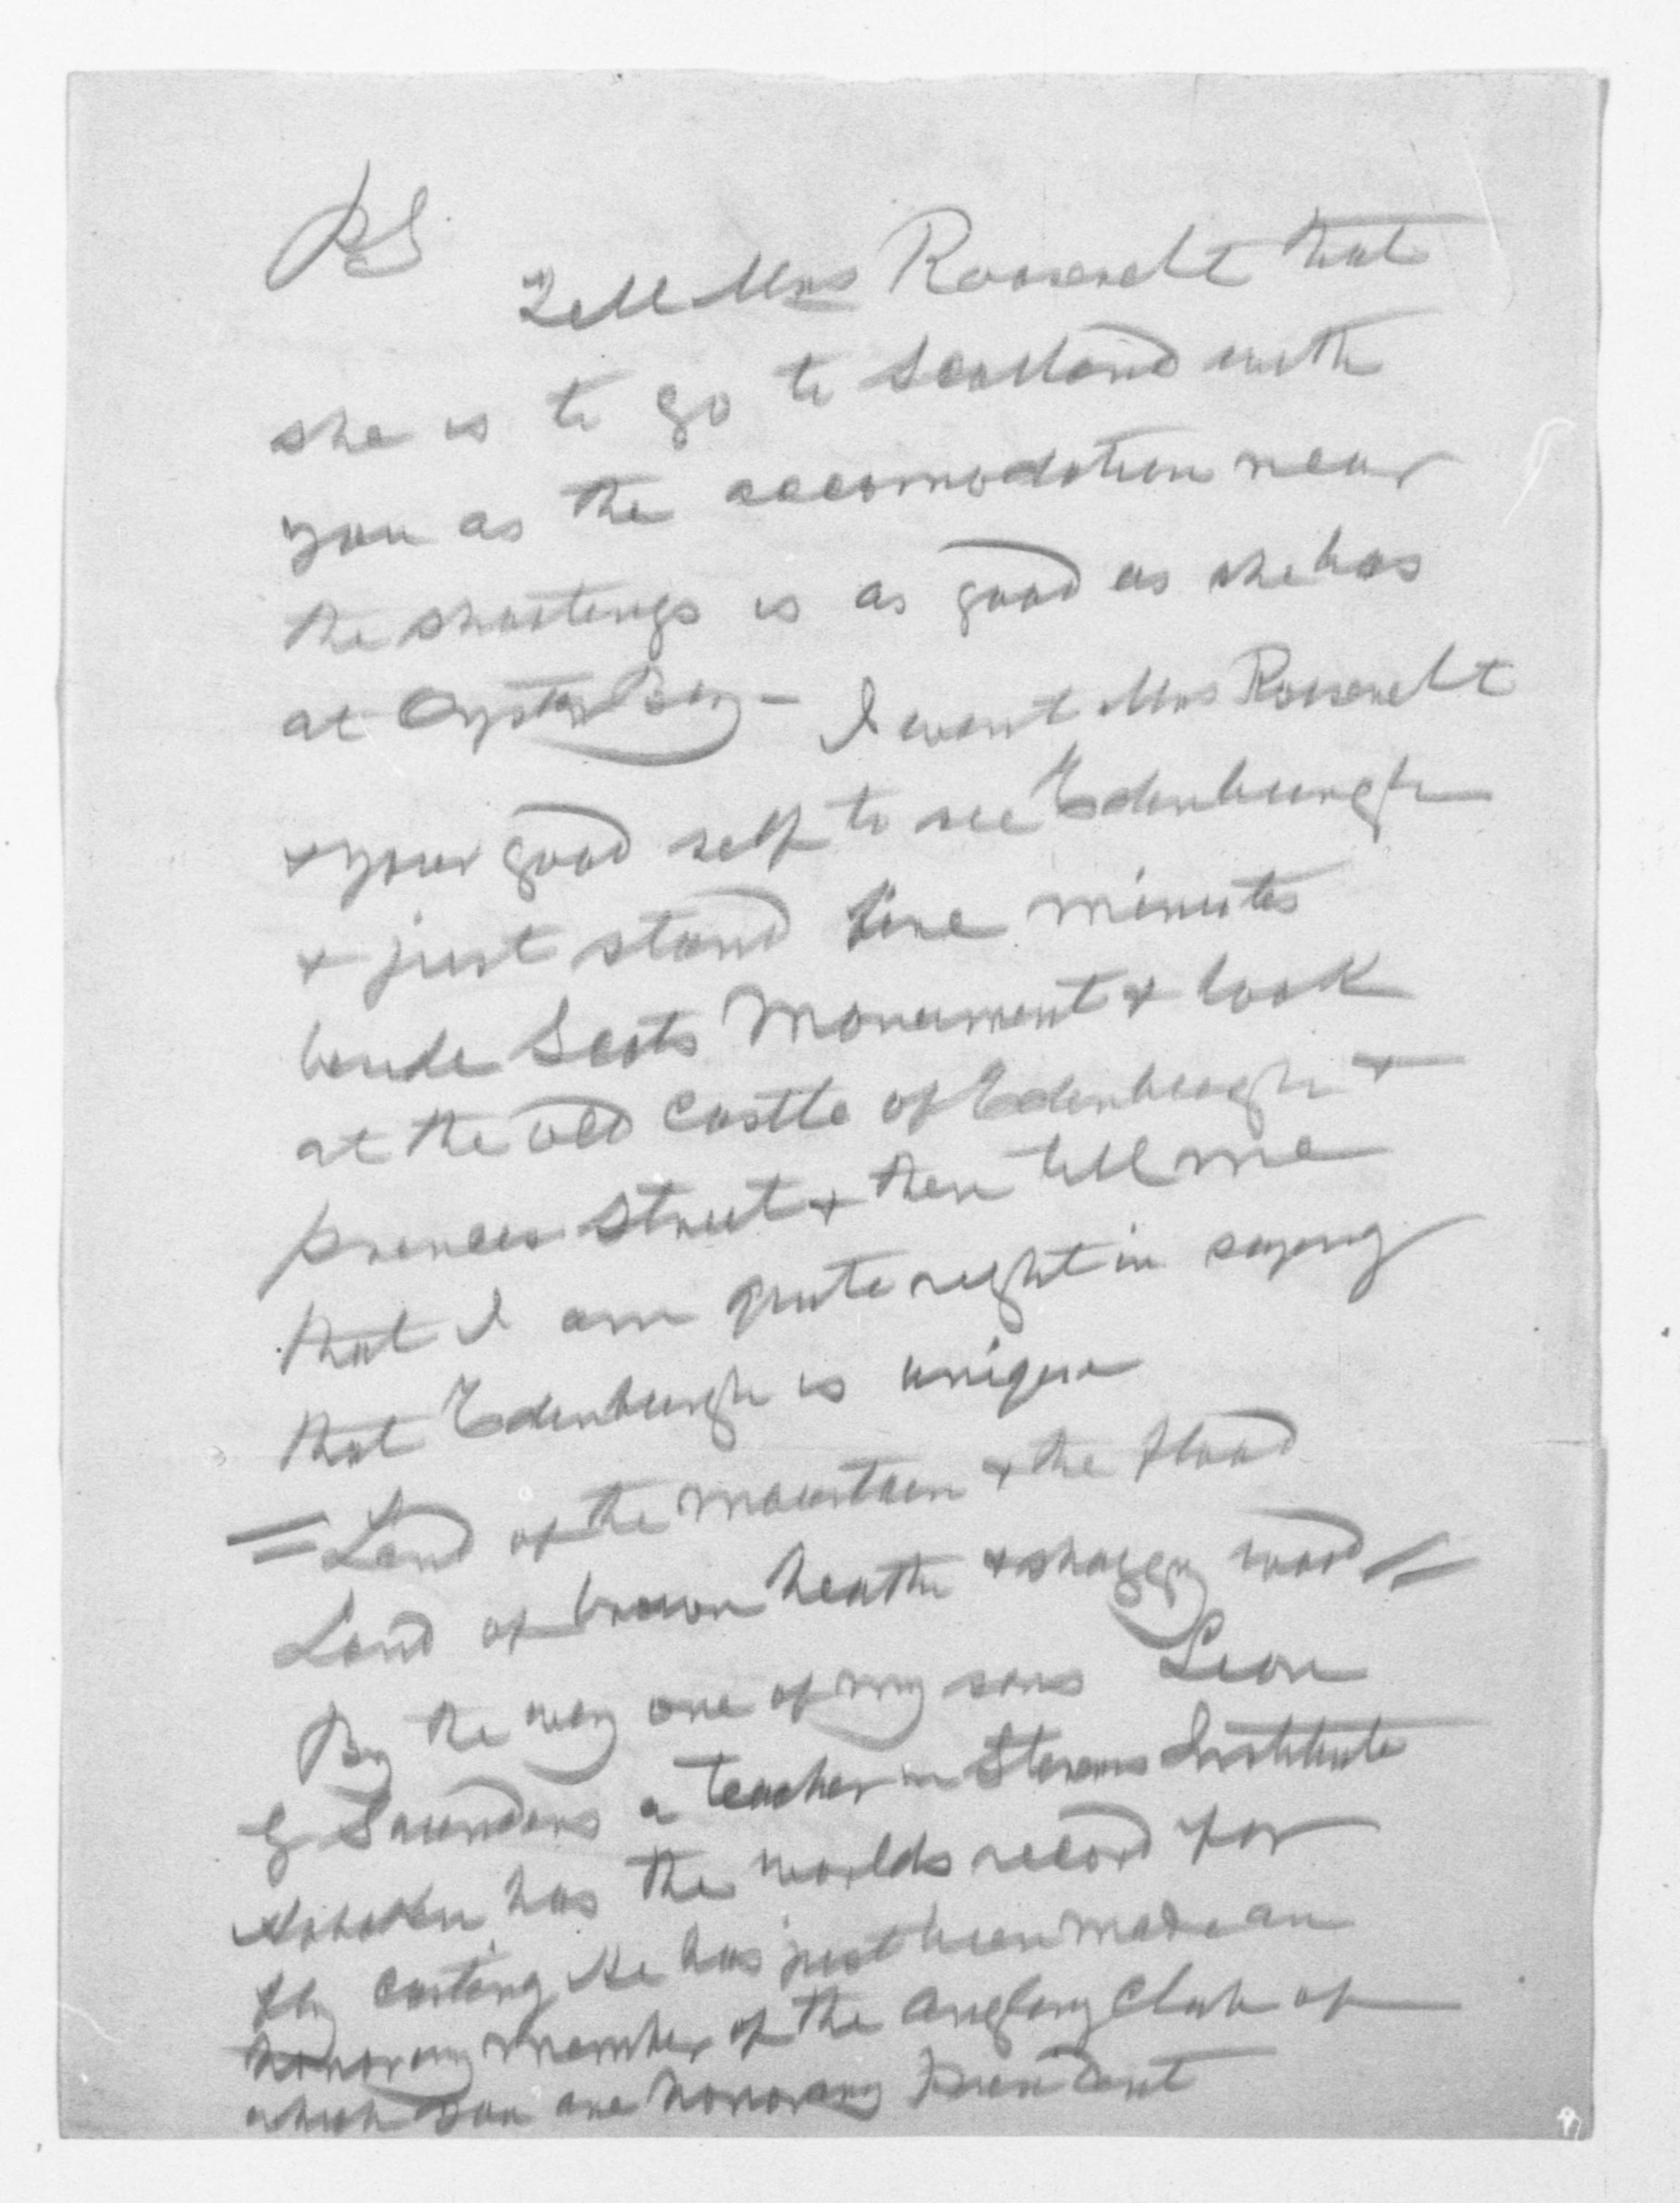 PS
Tell Mrs Roosevelt that
she is to go to Scotland with
you as the accomodation near
the shootings is as good as she has
at Oyster Bay - I want Mrs Roosevelt
& your good self to see Edenburgh
& just stand five minutes
beside Scots Monument & look
at the old Castle of Edenburgh &
princes Street & then tell me
that I am quite right in saying
that Edenburgh is unique
= Land of the mountain & the flood
Land of brown heath & shaggy wood =
By the way one of my sons Leon
G Saunders a teacher in Stevens Institute
Hoboken has the worlds record for
fly casting He has just been made an
honorary member of the Angling Club of
which you are honorary President